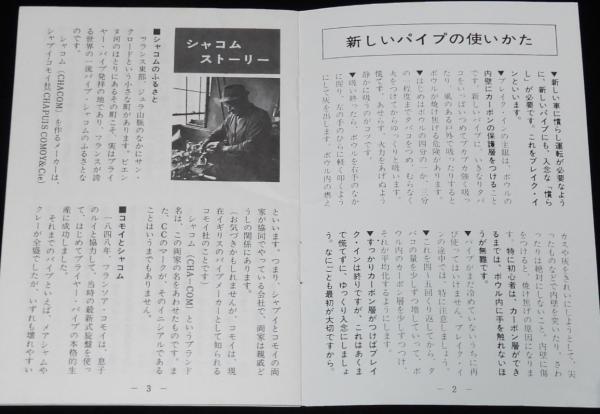 新しいパイプの使いかた
▼新しい車に慣らし運転が必要なよう
に、新しいパイプにも、入念な「慣ら
し」が必要です。これをブレイク・イ
ンといいます。
▼ブレイク・インの主眼は、ボウルの
内壁にカーボンの保護層をつけること
です。新しいパイプに、いきなりタバ
コをいっぱいつめてプカプカ強く吸っ
たり、風のある戸外で吸ったりすると
ボウルが焼け焦げる危険があります。
▼はじめはボウルの四分の一か、三分
の一程度までタバコをつめ、むらなく
火をつけてからゆっくりと吸います。
慌てず、あせらず、火力をあげぬよう
静かに吸うのがコツです。
▼吸い終ったら、ボウルを右手のなか
に握り、左の手のひらに軽く叩くよう
にして灰を出します。ボウル内の燃え
カスや灰をきれいにしようとして、尖
ったものなどで内壁を突いたり、さわ
ったりは絶対にしないこと。内壁に傷
をつけると、焼け焦げの原因になりま
す。特に初心者は、カーボン層ができ
るまでは、ボウル内に手を触れないほ
うが無難です。
▼パイプがまだ冷めていないうちに再
び使ってはいけません。ブレイク・イ
ンの途中では、特に注意しましょう。
▼これを四〜五回くり返してから、タ
バコの量を少しずつ増していって、ボ
ウル内のカーボン層を少しずつつけ、
それが平均化するようにします。
▼すっかりカーボン層がつけばブレイ
ク・インは終りですが、これはあくま
で慌てずに、ゆっくり入念にしましょ
う。なにごとも最初が大切ですから。
— 2 —
シャコム
ストーリー
■シャコムのふるさと
フランス東部、ジュラ山脈のなかにサン・
クロードという小さな町があります。ビエン
ヌ河のほとりにあるその町こそ、実はブライ
ヤー・パイプ発祥の地であり、フランスが誇
る世界の一流パイプ・シャコムのふるさとな
のです。
シャコム（CHACOM）を作るメーカーは、
シャプイ・コモイ社（CHAPUIS COMOY&Cie）
といいます。つまり、シャプイとコモイの両
家が協同でやっている会社で、両家は親戚ど
うしの関係にあります。
（お気づきかもしれませんが、コモイは、現
在イギリスのパイプメーカーとして知られる
コモイ社のことです）
シャコム（CHA—COM）というブランド
名は、この両家の名をあわせたものです。ま
た、CCのマークが、そのイニシアルである
ことはいうまでもありません。
■コモイとシャコム
一八四八年、フランソア・コモイは、息子
のルイと協力して、当時の最新式旋盤を使っ
て、はじめてブライヤー・パイプの本格的生
産に成功しました。
それまでのパイプといえば、メアシャムや
クレーが全盛でしたが、いずれも壊れやすい
— 3 —